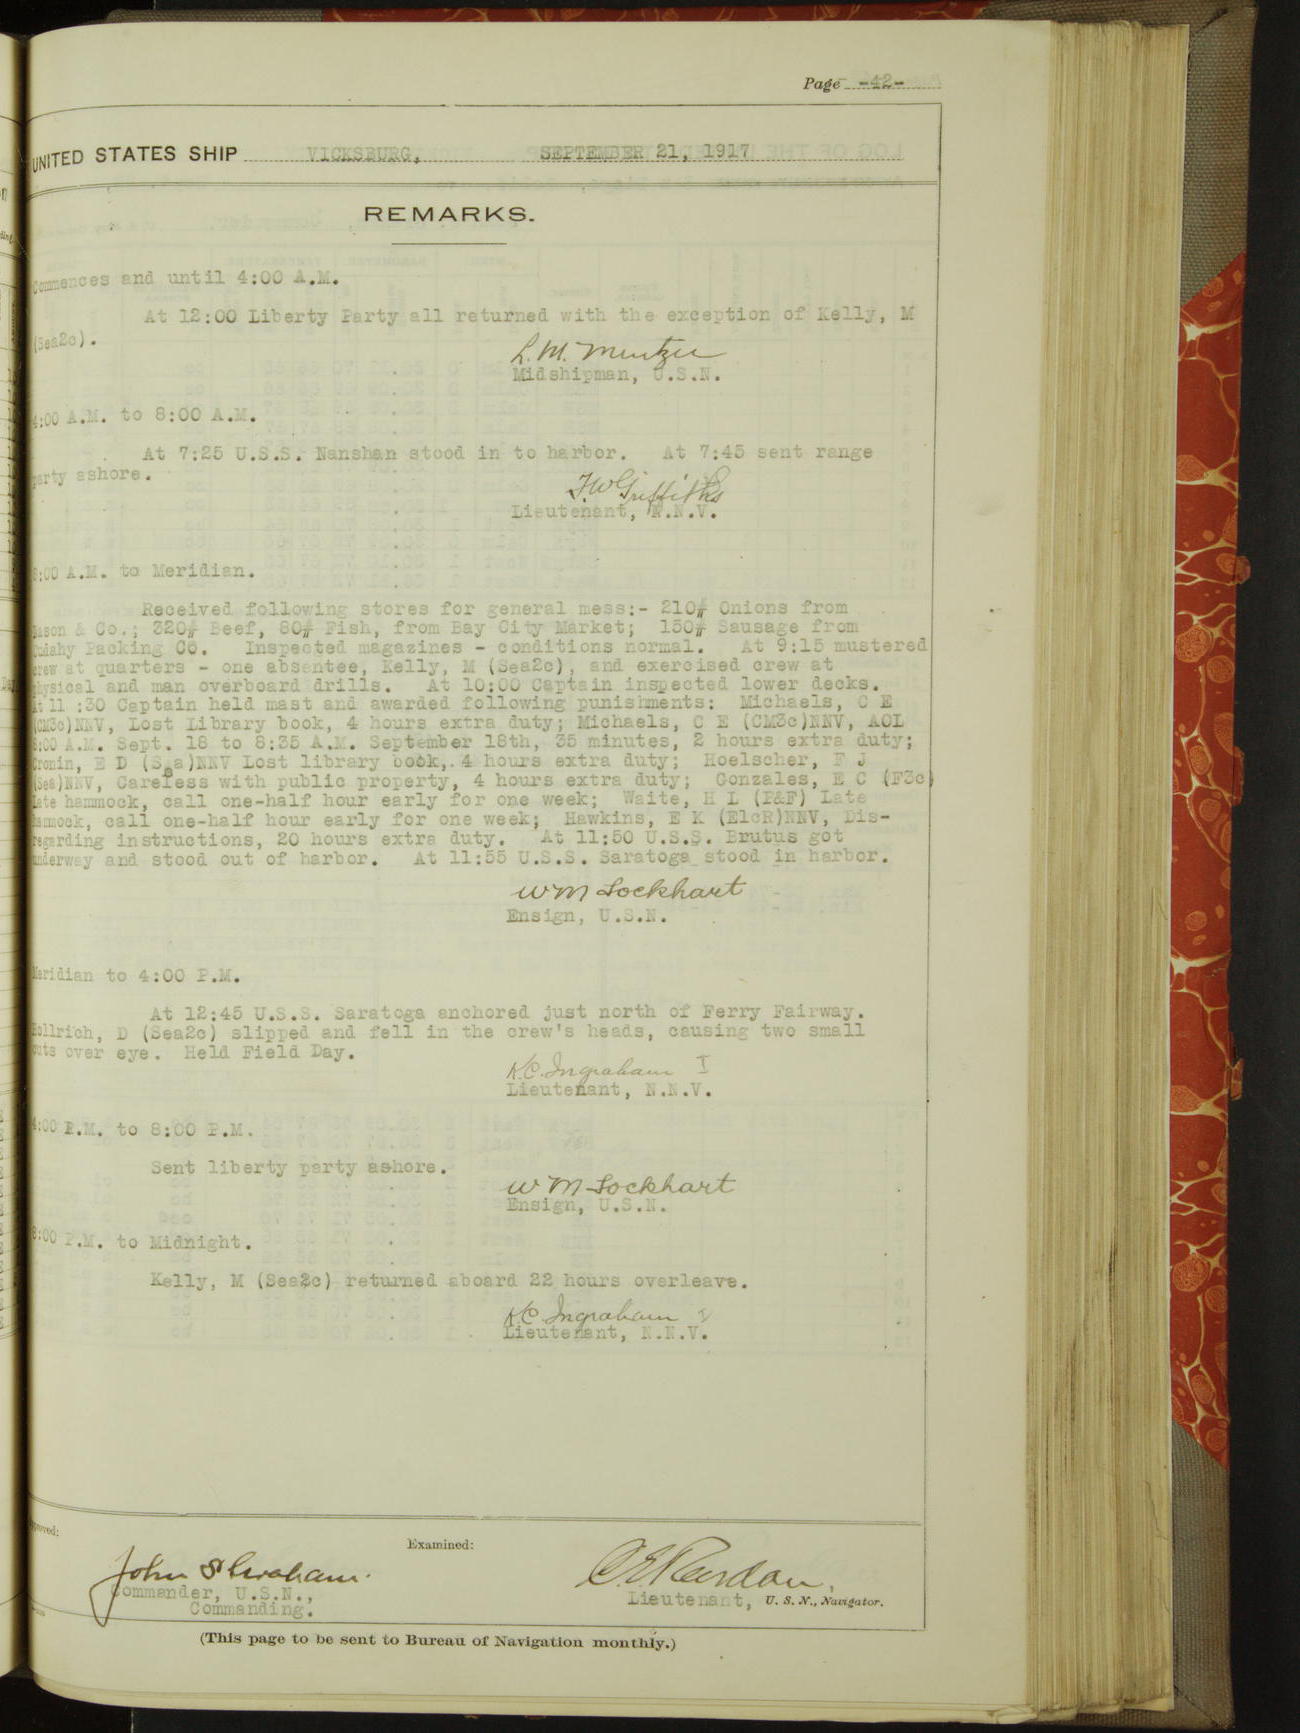 Page -42-
UNITED STATES SHIP VICKSBURG, SEPTEMBER 21, 1917
REMARKS.
Commences and until 4:00 A.M.
At 12:00 Liberty Party all returned with the exception of Kelly, M
(Sea2c).
L. M. Mentzer
Midshipman, U.S.N.
4:00 A.M. to 8:00 A.M.
At 7:25 U.S.S. Nanshan stood in to harbor. At 7:45 sent range
party ashore.
F.W. Griffiths
Lieutenant, N.N.V.
8:00 A.M. to Meridian.
Received following stores for general mess:- 210# Onions from
& Co.; 320# Beef, 80# Fish, from Bay City Market; 150# Sausage from
Cudahy Packing Co. Inspected magazines - conditions normal. At 9:15 mustered
crew at quarters - one absentee, Kelly, M (Sea2c), and exercised crew at
physical and man overboard drills. At 10:00 Captain inspected lower decks.
At 11 :30 Captain held mast and awarded following punishments: Michaels, C E
(CM3c)NNV, Lost Library book, 4 hours extra duty; Michaels, C E (CM3c)NNV, AOL
8:00 A.M. Sept. 18 to 8:35 A.M. September 18th, 35 minutes, 2 hours extra duty;
Cronin, E D (Sea)NNV Lost library book, 4 hours extra duty; Hoelscher, F J
(Sea)NNV, Careless with public property, 4 hours extra duty; Gonzales, E C (F3c)
Late hammock, call one-half hour early for one week; Waite, H L (P&F) Late
hammock, call one-half hour early for one week; Hawkins, E K (E1cR)NNV, Dis-
regarding instructions, 20 hours extra duty. At 11:50 U.S.S. Brutus got
underway and stood out of harbor. At 11:55 U.S.S. Saratoga stood in harbor.
W M Lockhart
Ensign, U.S.N.
Meridian to 4:00 P.M.
At 12:45 U.S.S. Saratoga anchored just north of Ferry Fairway.
Hollrich, D (Sea2c) slipped and fell in the crew's heads, causing two small
cuts over eye. Held Field Day.
K.C. Ingraham I
Lieutenant, N.N.V.
4:00 P.M. to 8:00 P.M.
Sent liberty party ashore.
W M Lockhart
Ensign, U.S.N.
8:00 P.M. to Midnight.
Kelly, M (Sea2c) returned aboard 22 hours overleave.
K.C. Ingraham I
Lieutenant, N.N.V.
Approved:
Examined:
John S Graham.
Commander, U.S.N.,
Commanding.
C. E. Reardon,
Lieutenant, U. S. N., Navigator.
(This page to be sent to Bureau of Navigation monthly.)